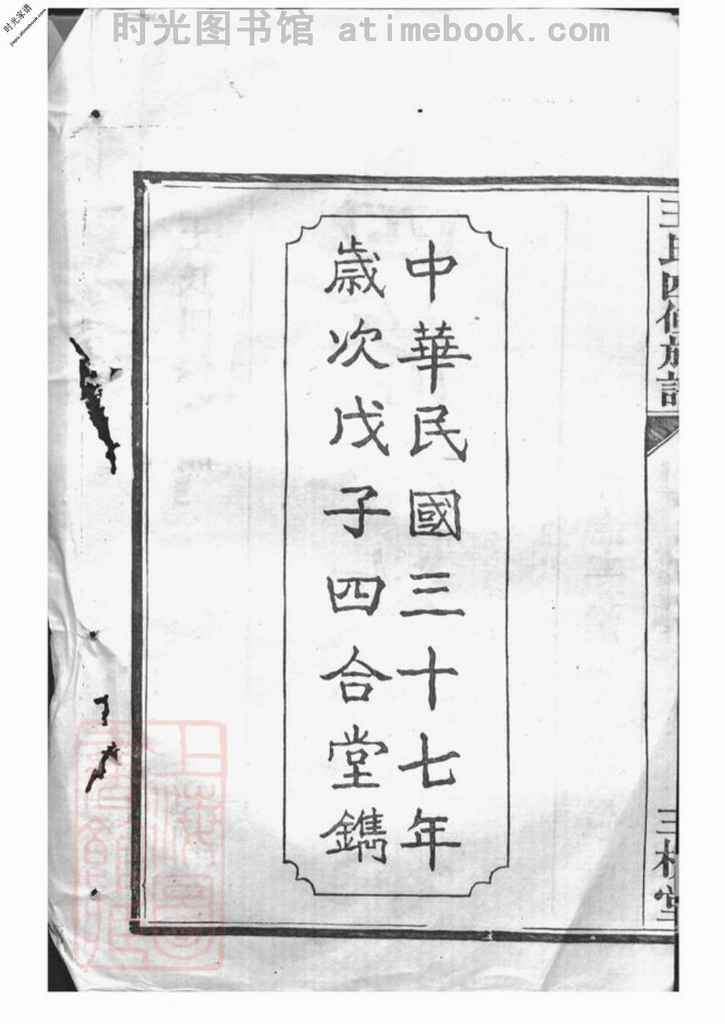 时光图书馆 atimebook.com
时光家谱
jiapu.atimebook.com
王氏四修族譜
三槐堂
中華民國三十七年
歲次戊子四合堂鐫